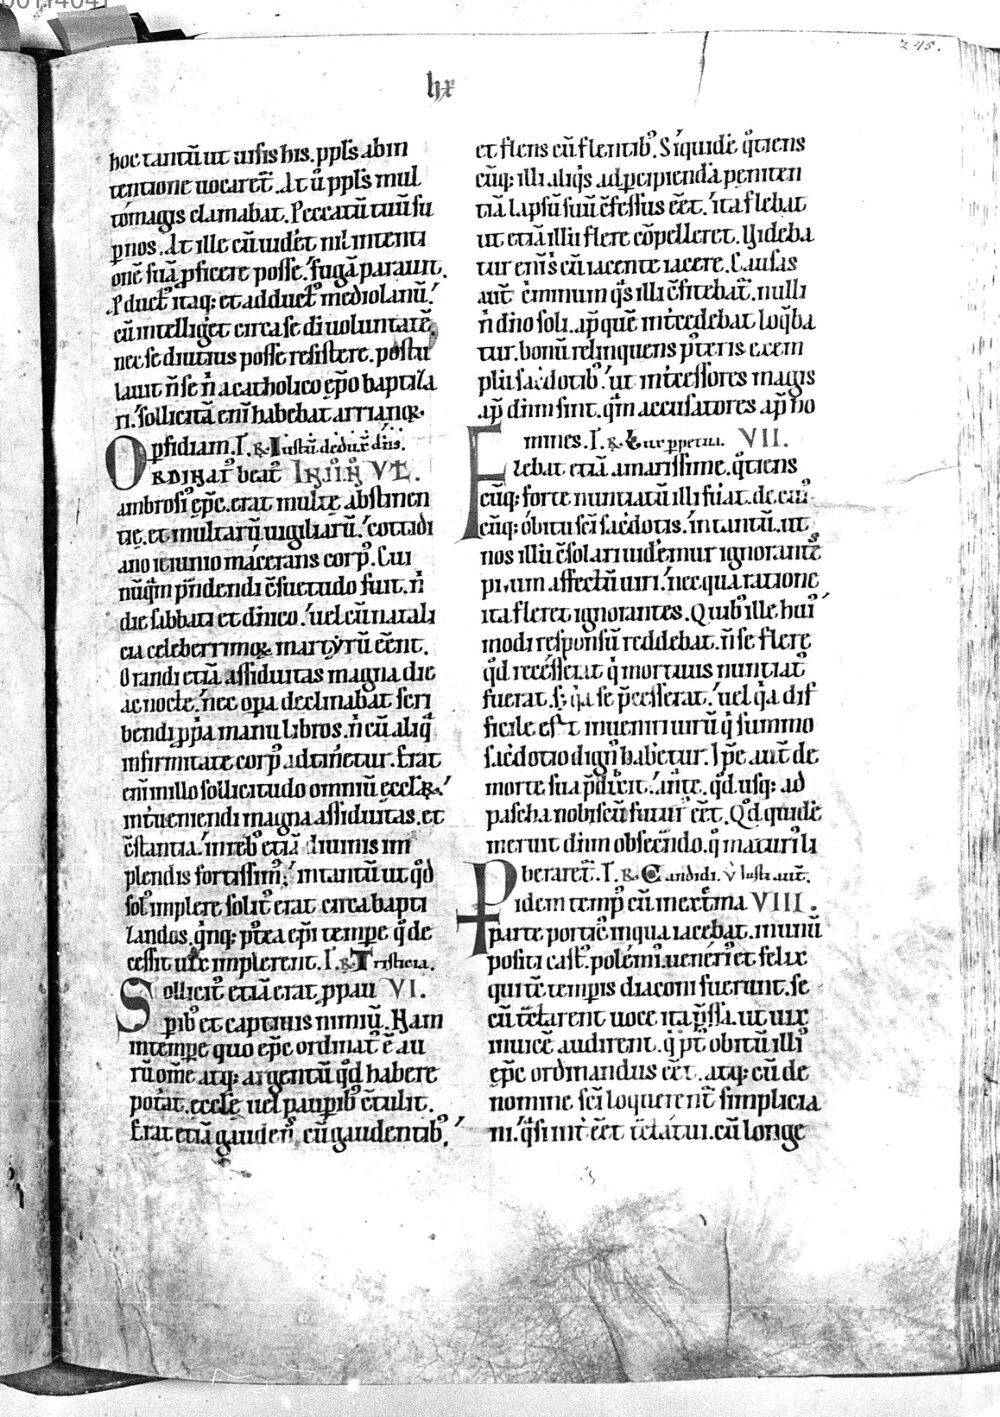 245.
lx
hoc tantū ut uisis his. ppl̄s ab in
tentione uocaret̄. At ū ppl̄s mul
to magis clamabat. Peccatū tuū su
p nos. At ille cū uidet nil intenti
onē suā pficere posse. fugā parauit.
Pduct itaq: et adduct mediolanū.
cū intelliget circa se di uoluntatē.
nec se diutius posse resistere. postu
lauit n̄ se n̄ a catholico ep̄o baptiza
ri. sollicitā eni habebat arrianoꝝ
pfidiam. I. ꝶ Iustū dedux̄ dn̄s.
ORDINAT beat IN N. N VI.
ambrosi ep̄c. erat multe abstinen
tie. et multarū uigiliarū. cottidi
ano ieiunio macerans corp. Cui
nūq̄m p̄ndendi c̄suetudo fuit. n̄
die sabbati et dn̄ico. uel cū natali
cia celeberrimoꝝ martyrū eēnt.
Orandi etiā assiduitas magna die
ac nocte. nec opa declinabat scri
bendi ppa manu libros. n̄ cū aliq
infirmitate corp adtinetur. Erat
eni in illo sollicitudo omniū eccl̄aꝝ.
int̄ueniendi magna assiduitas. et
c̄stantia. in reb etiā diuinis im
plendis fortissim. in tantū ut qd
sol implere solit erat circa bapti
zandos. qnq: p̄tea ep̄i tempe q de
cessit uix implerent. I. ꝶ Tristicia.
Sollicit etiā erat. p pau VI.
pib et captiuis nimiū. Nam
in tempe quo ep̄c ordinat ē au
rū om̄e atq: argentū qd habere
potat. eccl̄e uel paupib c̄tulit.
Erat etiā gauden cū gaudentib.
et flens cū flentib. Siquidē qtiens
cūq: illi aliqs ad pcipiendā peniten
tiā lapsū suū c̄fessus eēt. ita flebat
ut etiā illū flere cōpelleret. Uideba
tur eni s cū iacente iacere. Causas
aut̄ c̄iminum qs illi c̄fitebat̄. nulli
n̄ dn̄o soli. ap̄ quē int̄cedebat loq̄ba
tur. bonū relinquens p̄teris exem
plū sac̄dotib. ut int̄cessores magis
ap̄ dnm sint. qm accusatores ap̄ ho
mines. I. ꝶ Lux ppetui. VII.
Flebat etiā amarissime. qtiens
cūq: forte nuntiatū illi fuiat. de cui
cūq: obitu sc̄i sac̄dotis. in tantū. ut
nos illū c̄solari uidemur ignorante
pium affectū uiri. nec qua ratione
ita fleret ignorantes. Quib ille hui
modi responsū reddebat. n̄ se flere
qd recessiat q mortuus nuntiat
fuerat. s; qa se p̄cesserat. uel qa dif
ficile est inueniri uirū q summo
sac̄dotio dign habetur. Ipe aut̄ de
morte sua p̄dixit. ante. qd usq: ad
pascha nobiscū futur eēt. Qd quidē
meruit dnm obsec̄ndo. q maturi li
beraret̄. I. ꝶ Candidi. v̄ Iusti aut̄.
Pidem temp cū in extima VIII.
parte portic̄ in qua iacebat. in unū
positi cast̄. polemi. ueneri et felix
qui tc̄ tempis diaconi fuerunt. se
cū t̄ctarent uoce ita p̄ssa. ut uix
inuicē audirent. q pt̄ obitū illi
ep̄c ordinandus eēt. atq: cū de
nomine sc̄i loquerent̄ simplicia
ni. qsi int̄ eēt t̄ctatui. cū longe